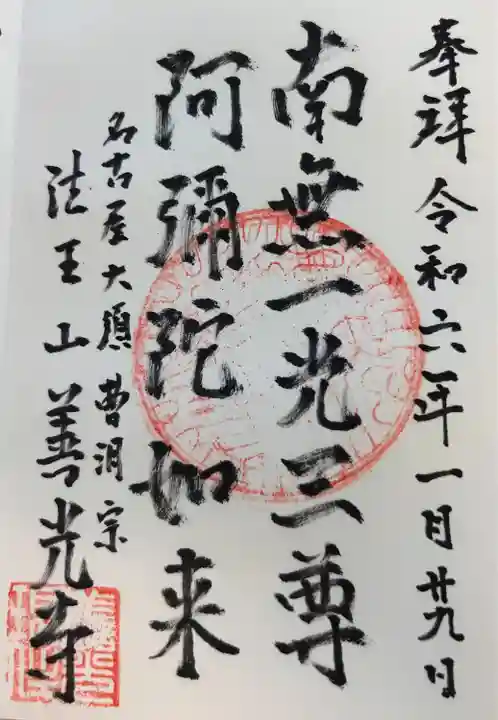 奉拝 令和六年一月廿九日
南無一光三尊
阿彌陀如来
名古屋大須 曹洞宗
法王山善光寺